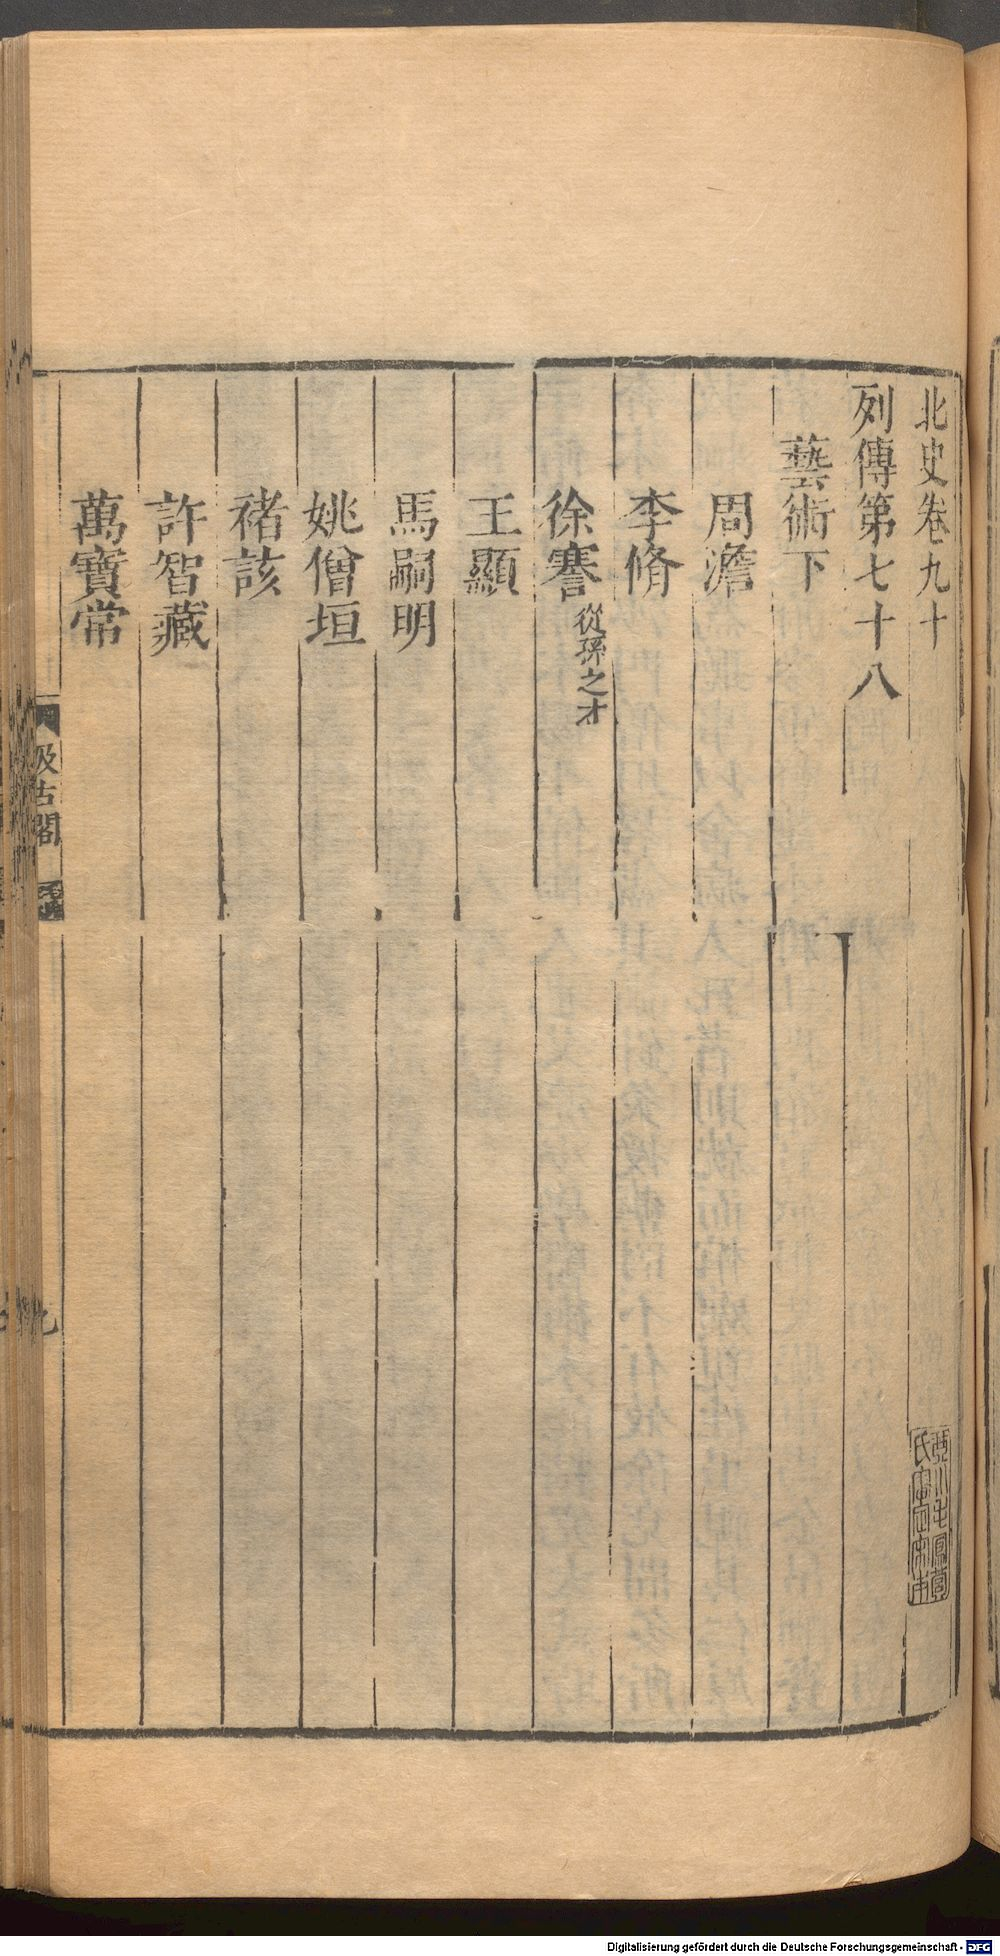 北史卷九十
列傳第七十八
藝術下
周澹
李脩
徐謇 從孫之才
王顯
馬嗣明
姚僧垣
褚該
許智藏
萬寶常
汲古閣
毛氏
Digitalisierung gefördert durch die Deutsche Forschungsgemeinschaft - DFG